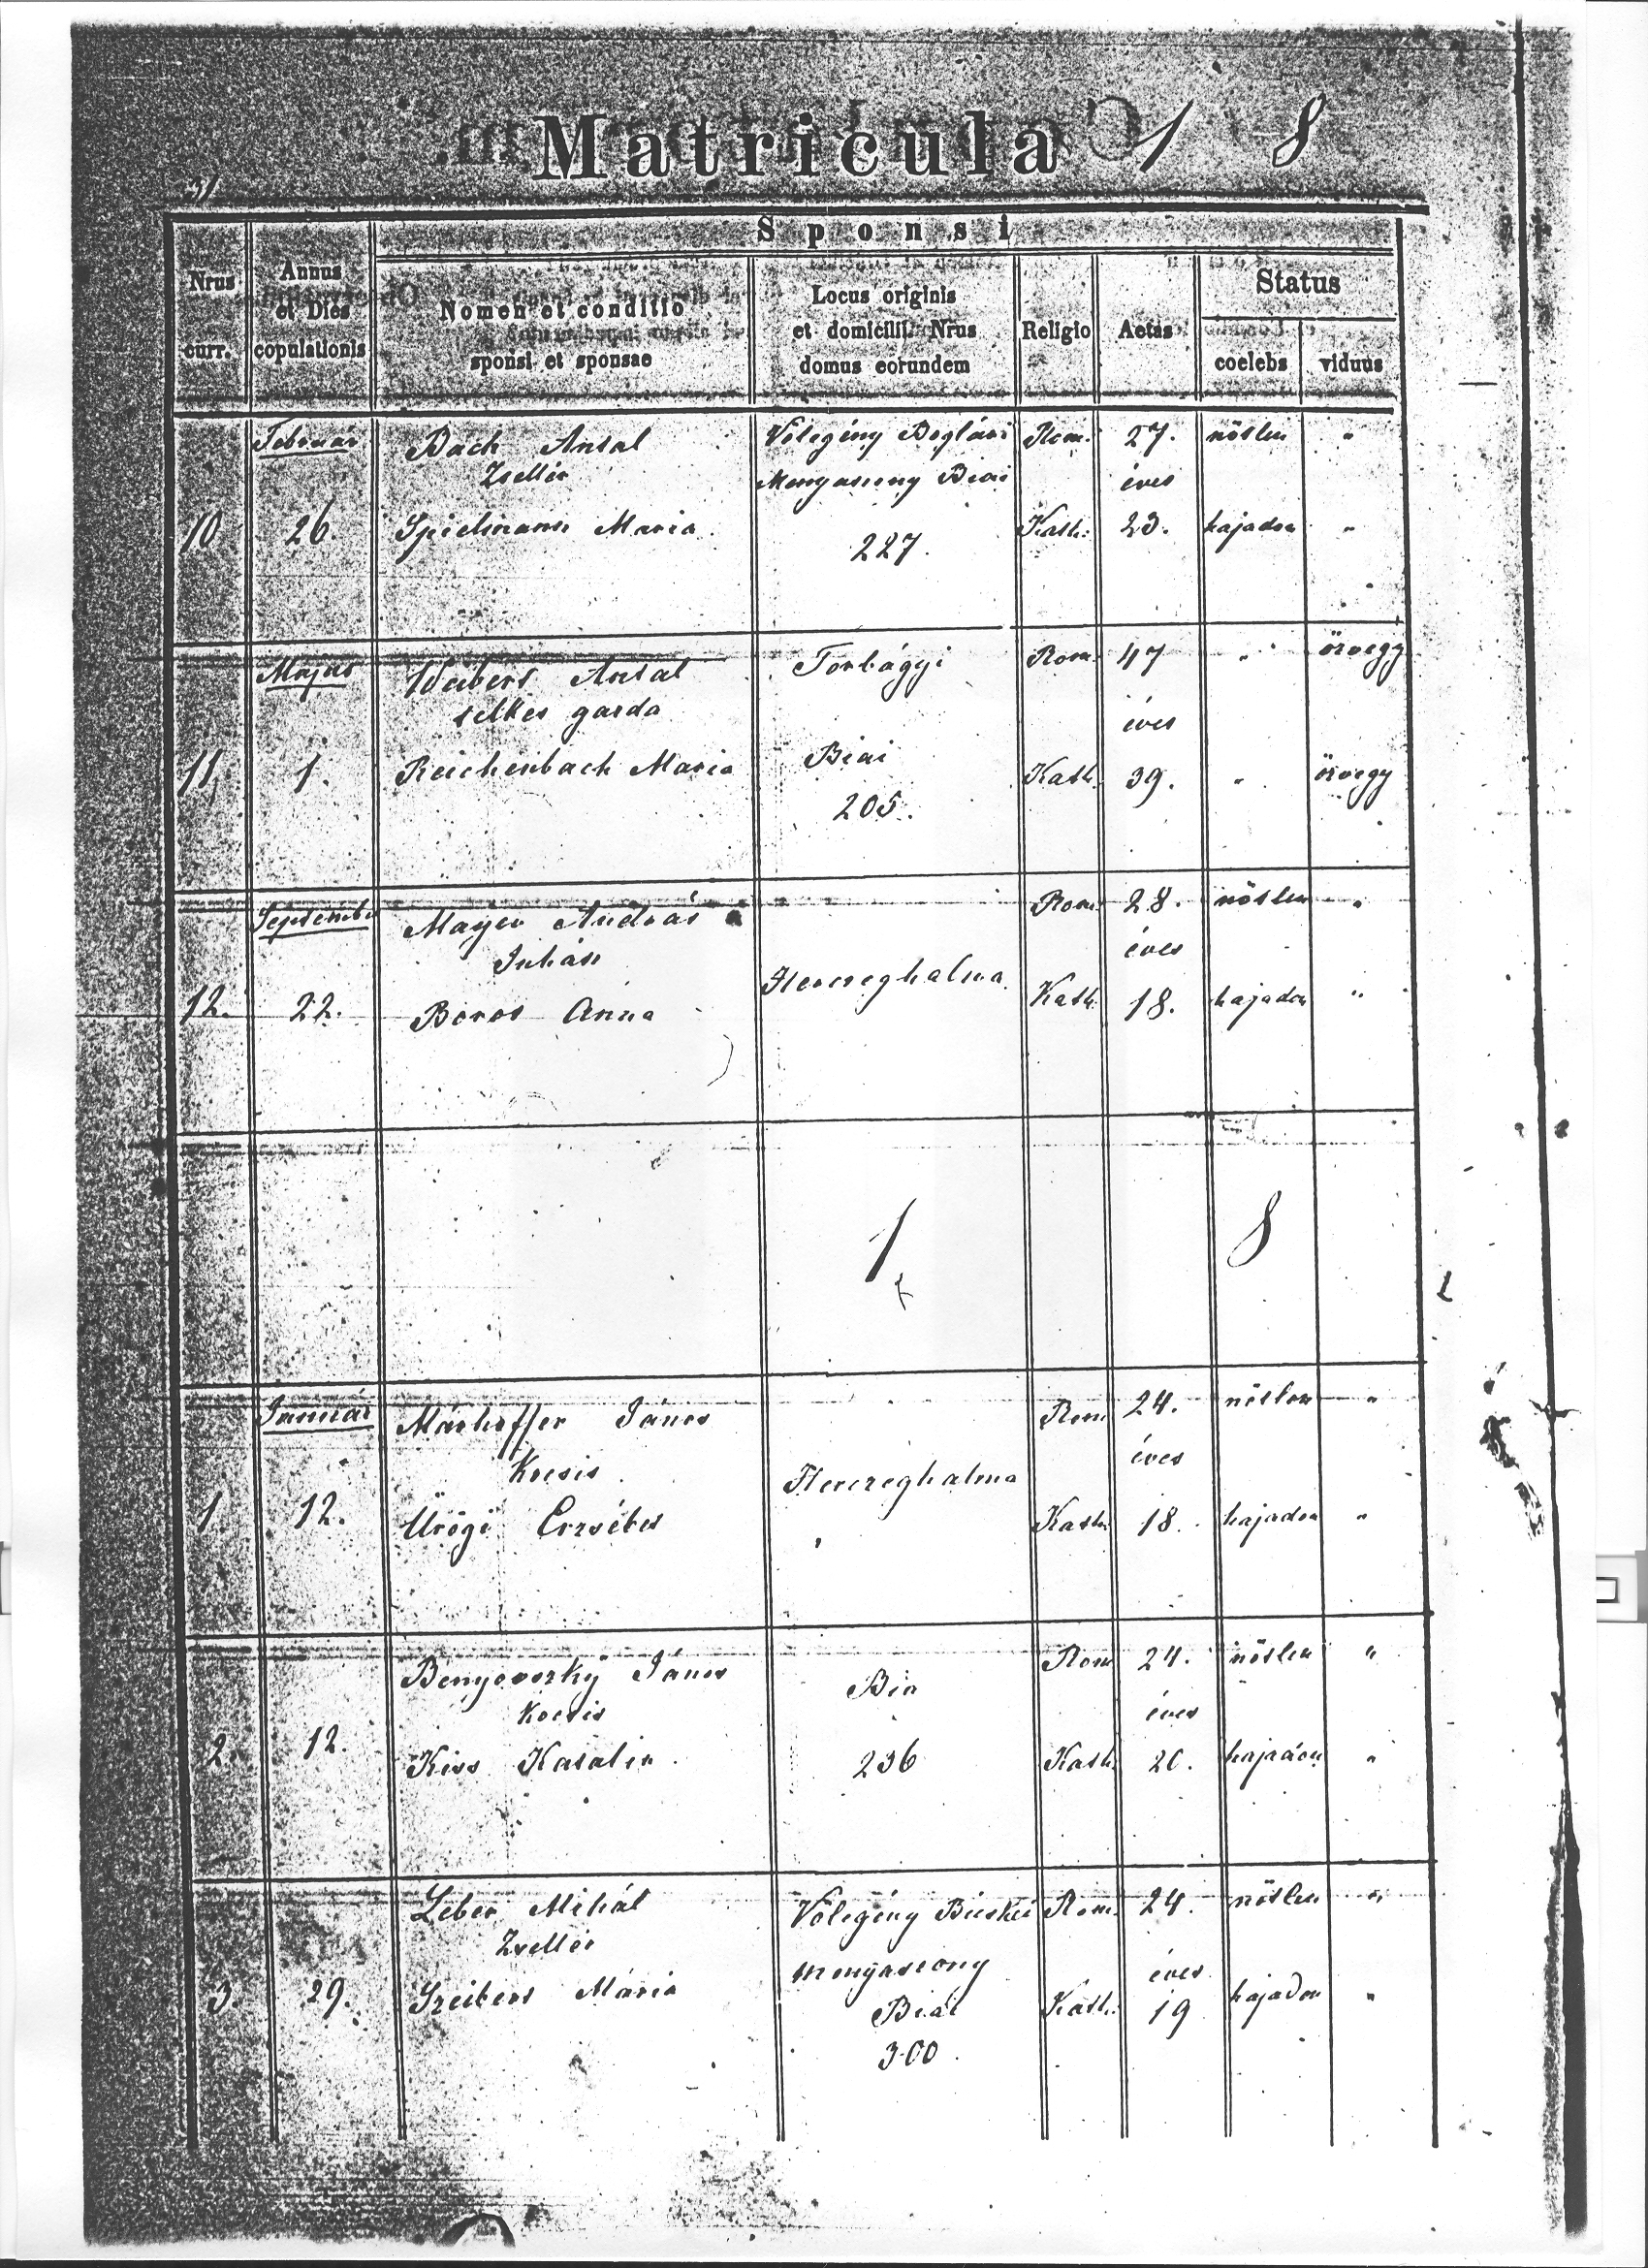 Matricula 1 8
51
Sponsi
Nrus curr.
Annus et Dies copulationis
Nomen et conditio sponsi et sponsae
Locus originis et domicilii Nrus domus eorundem
Religio
Aetas
Status
coelebs
viduus
Február Bach Antal Vőlegény Boglári Rom. 27. nőtlen "
Zsellér Menyasszony Biai éves
10 26. Spielmann Maria 227. Kath. 23. hajadon "
Május Antal Torbágyi Rom. 47 " özvegy
garda éves
11 1. Reichenbach Maria Biai Kath. 39. " özvegy
205.
September Mayer András Rom. 28. nőtlen "
Juhász éves
12. 22. Boros Anna Herczeghalma Kath. 18. hajadon "
1 8
Január Márhoffer János Rom. 24. nőtlen "
Kocsis Herczeghalma éves
1. 12. Ürögi Erzsébet Kath. 18. hajadon "
Benyovszky János Bia Rom. 24. nőtlen "
Kocsis éves
2. 12. Kiss Katalin 236 Kath. 20. hajadon "
Léber Mihál Vőlegény Bicskei Rom. 24. nőtlen "
Zsellér menyasszony éves
3. 29. Szeibert Mária Biai Kath. 19 hajadon "
300.